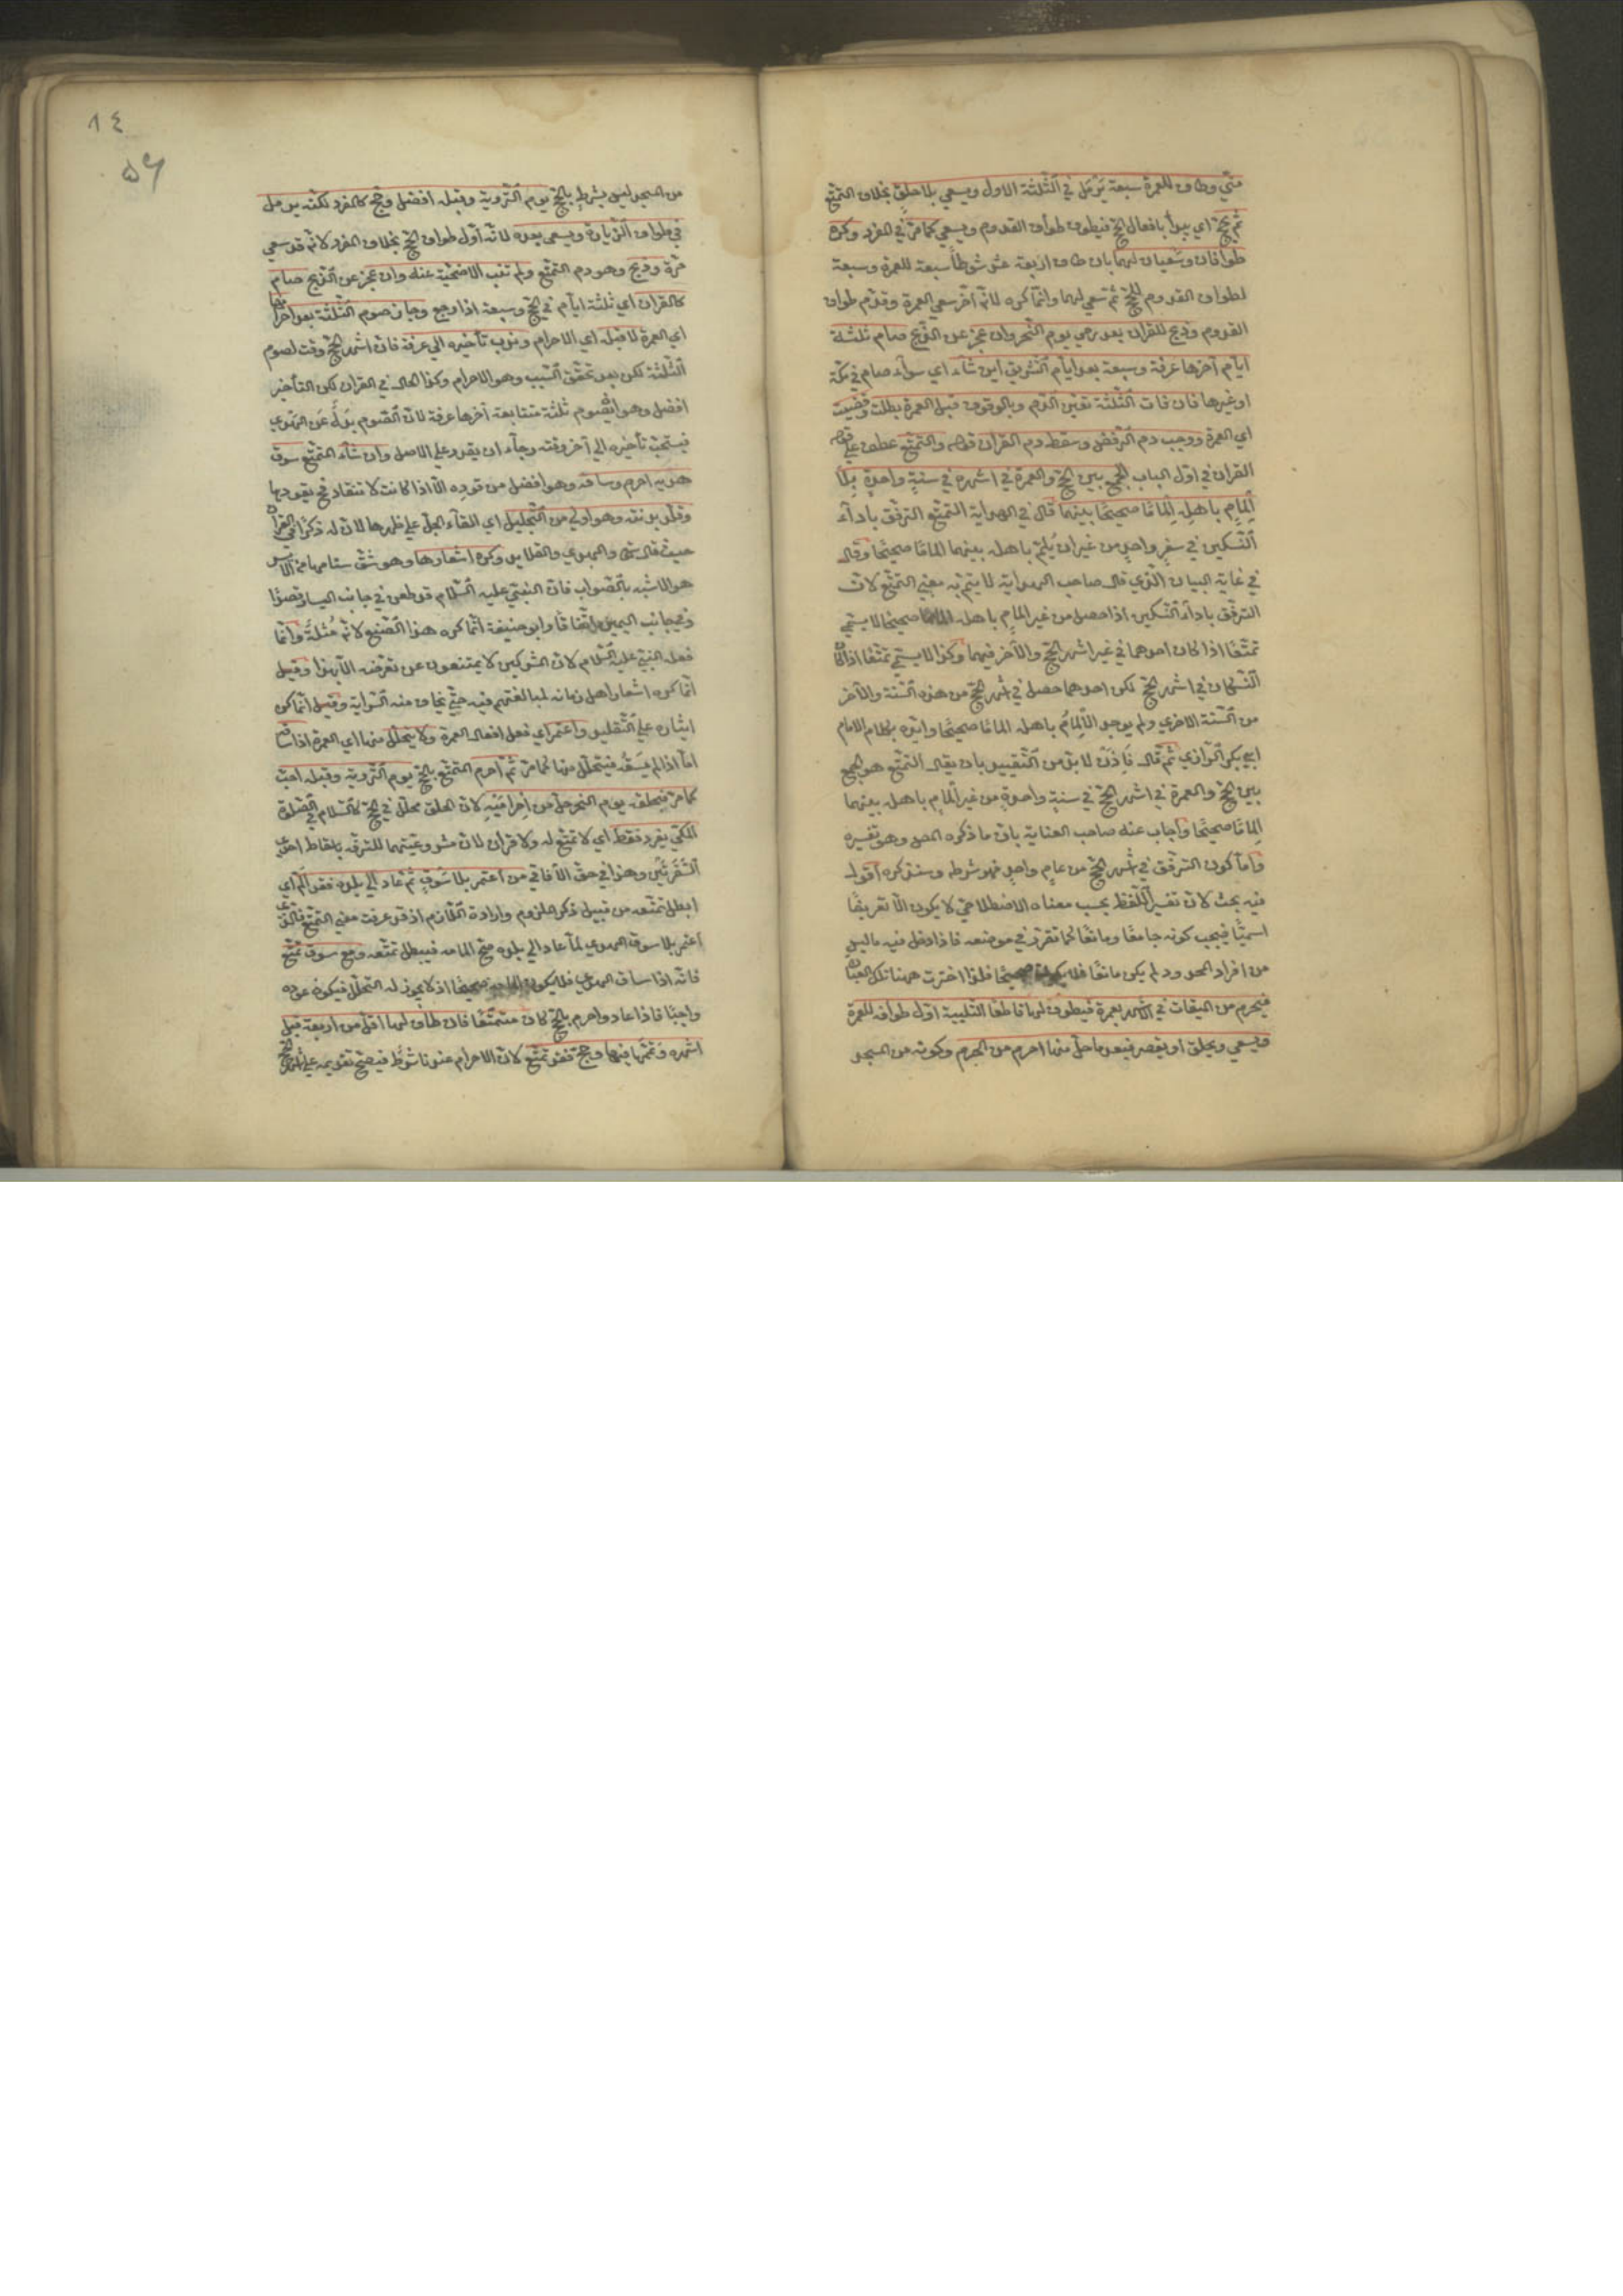 منّي وطاف للعمرة سبعة يرمل في الثلثة الاول ويسعي بلا حلق بخلاف المتمتّع
ثم يحجّ اي يبدأ بافعال الحجّ فيطوف طواف القدوم ويسعي كما مرّ في المفرد وكره
طوافان وسعيان لهما بان طاف اربعة عشر شوطاً سبعة للعمرة وسبعة
لطواف القدوم للحجّ ثم سعي لهما وانما كره لانه أخّر سعي العمرة وقدّم طواف
القدوم وذبح للقران بعد رمي يوم النحر وان عجز عن الذبح صام ثلثة
ايام آخرها عرفة وسبعة بعد ايام التشريق اين شاء اي سواء صام في مكة
او غيرها فان فات الثلثة تعيّن الدم وبالوقوف قبل العمرة بطلت وقضيت
اي العمرة ووجب دم الرفض وسقط دم القران قوله والتمتّع عطف علي قوله
القران في اوّل الباب الجمع بين الحجّ والعمرة في اشهره في سنةٍ واحدةٍ بلا
إلمامٍ باهله إلماماً صحيحاً بينهما قال في الهداية التمتع الترفّق باداء
النسكين في سفرٍ واحدٍ من غير ان يُلمّ باهله بينهما الماماً صحيحاً وقال
في غاية البيان الذي قال صاحب الهداية لا يتم به معني التمتّع لان
الترفّق باداء النسكين اذا حصل من غير المامٍ باهله الماما صحيحا لا يسمّي
تمتّعاً اذا كان احدهما في غير اشهر الحجّ والآخر فيها وكذا لا يسمّي تمتعاً اذا كان
النسكان في اشهر الحجّ لكن احدهما حصل في اشهر الحجّ من هذه السنة والآخر
من السنة الاخري ولم يوجد الإلمام باهله الماماً صحيحاً وايّده بكلام الامام
ابي بكر الرازي ثم قال فإذن لا بدّ من التقييد بان يقال التمتّع هو الجمع
بين الحجّ والعمرة في اشهر الحجّ في سنةٍ واحدةٍ من غير إلمامٍ باهله بينهما
إلماماً صحيحاً وأجاب عنه صاحب العناية بان ما ذكره المص وهو تفسيره
وأما كون الترفّق في اشهر الحجّ من عامٍ واحدٍ فهو شرطه وسنذكره أقول
فيه بحث لان تفسير اللفظ بحسب معناه الاصطلاحي لا يكون الا تعريفاً
اسميّاً فيجب كونه جامعاً ومانعاً كما تقرّر في موضعه فاذا دخل فيه ما ليس
من افراد المحدود لم يكن مانعاً فلا يكون صحيحاً فلذا اخترت ههنا تلك العبارة
فيحرم من الميقات في اشهره بعمرة فيطوف لها قاطعاً التلبية اوّل طوافه للعمرة
ويسعي ويحلق او يقصر فبعد ما حلّ منها احرم من الحرم وكونه من المسجد
١٤
٥٦
من المسجد ليس بشرط بالحجّ يوم التروية وقبله افضل وحجّ كالمفرد لكنه يرمل
في طواف الزيارة ويسعي بعده لانه اوّل طواف الحجّ بخلاف المفرد لانه قد سعي
مرّة وذبح وهو دم التمتّع ولم تنب الاضحيّة عنه وان عجز عن الذبح صام
كالقران اي ثلثة ايام في الحجّ وسبعة اذا رجع وجاز صوم الثلثة بعد احرامها
اي العمرة لا قبله اي الاحرام وندب تأخيره الي عرفة فان اشهر الحجّ وقت لصوم
الثلثة لكن بعد تحقق السبب وهو الاحرام وكذا الحال في القران لكن التأخير
افضل وهو ان يصوم ثلثة متتابعة آخرها عرفة لان الصوم بدلٌ عن الهدي
فيستحبّ تأخيره الي آخر وقته رجاء ان يقدر علي الاصل وان شاء المتمتّع سوق
هديه احرم وساقه وهو افضل من قوده الا اذا كانت لا تنقاد فح يقودها
وقلّد بدنته وهو اولي من التجليل اي القاء الجلّ علي ظهرها لان له ذكراً في القرآن
حيث قال تعالي والهدي والقلايد وكره اشعارها وهو شقّ سنامها من الايسر
هو الاشبه بالصواب فان النبي عليه السلام قد طعن في جانب اليسار قصداً
وفي جانب اليمين اتفاقاً وابو حنيفة انما كره هذا الصنيع لانه مُثلةٌ وانما
فعله النبي عليه السلام لان المشركين لا يمتنعون عن تعرّضه الا بهذا وقيل
انما كره اشعار اهل زمانه لمبالغتهم فيه حتي يخاف منه السراية وقيل انما كره
ايثاره علي التقليد واعتمر اي فعل افعال العمرة ولا يتحلّل منها اي العمرة اذا ساق
امّا اذا لم يسق فيتحلّل منها كما مرّ ثم احرم المتمتّع بالحجّ يوم التروية وقبله احبّ
كما مرّ فبحلقه يوم النحر حلّ من إحراميه لان الحلق محلّل في الحجّ كالسلام في الصلوة
المكّي يفرد فقط اي لا تمتّع له ولا قران لان مشروعيتهما للترفّه باسقاط احدي
السفرتين وهذا في حق الآفاقي من اعتمر بلا سوقٍ ثم عاد الي بلده فقد ألمّ اي
ابطل تمتّعه من قبيل ذكر الملزوم وارادة اللازم اذ قد عرفت معني التمتّع فالذي
اعتمر بلا سوق الهدي لما عاد الي بلده صحّ المامه فيبطل تمتّعه ومع سوق تمتّع
فانه اذا ساق الهدي فلا يكون المامه صحيحا اذ لا يجوز له التحلّل فيكون عوده
واجباً فاذا عاد واحرم بالحجّ كان متمتّعاً فان طاف لها اقلّ من اربعة قبل
اشهره وتمّمها فيها وحجّ فقد تمتّع لان الاحرام عندنا شرط فيصحّ تقديمه علي اشهر الحجّ